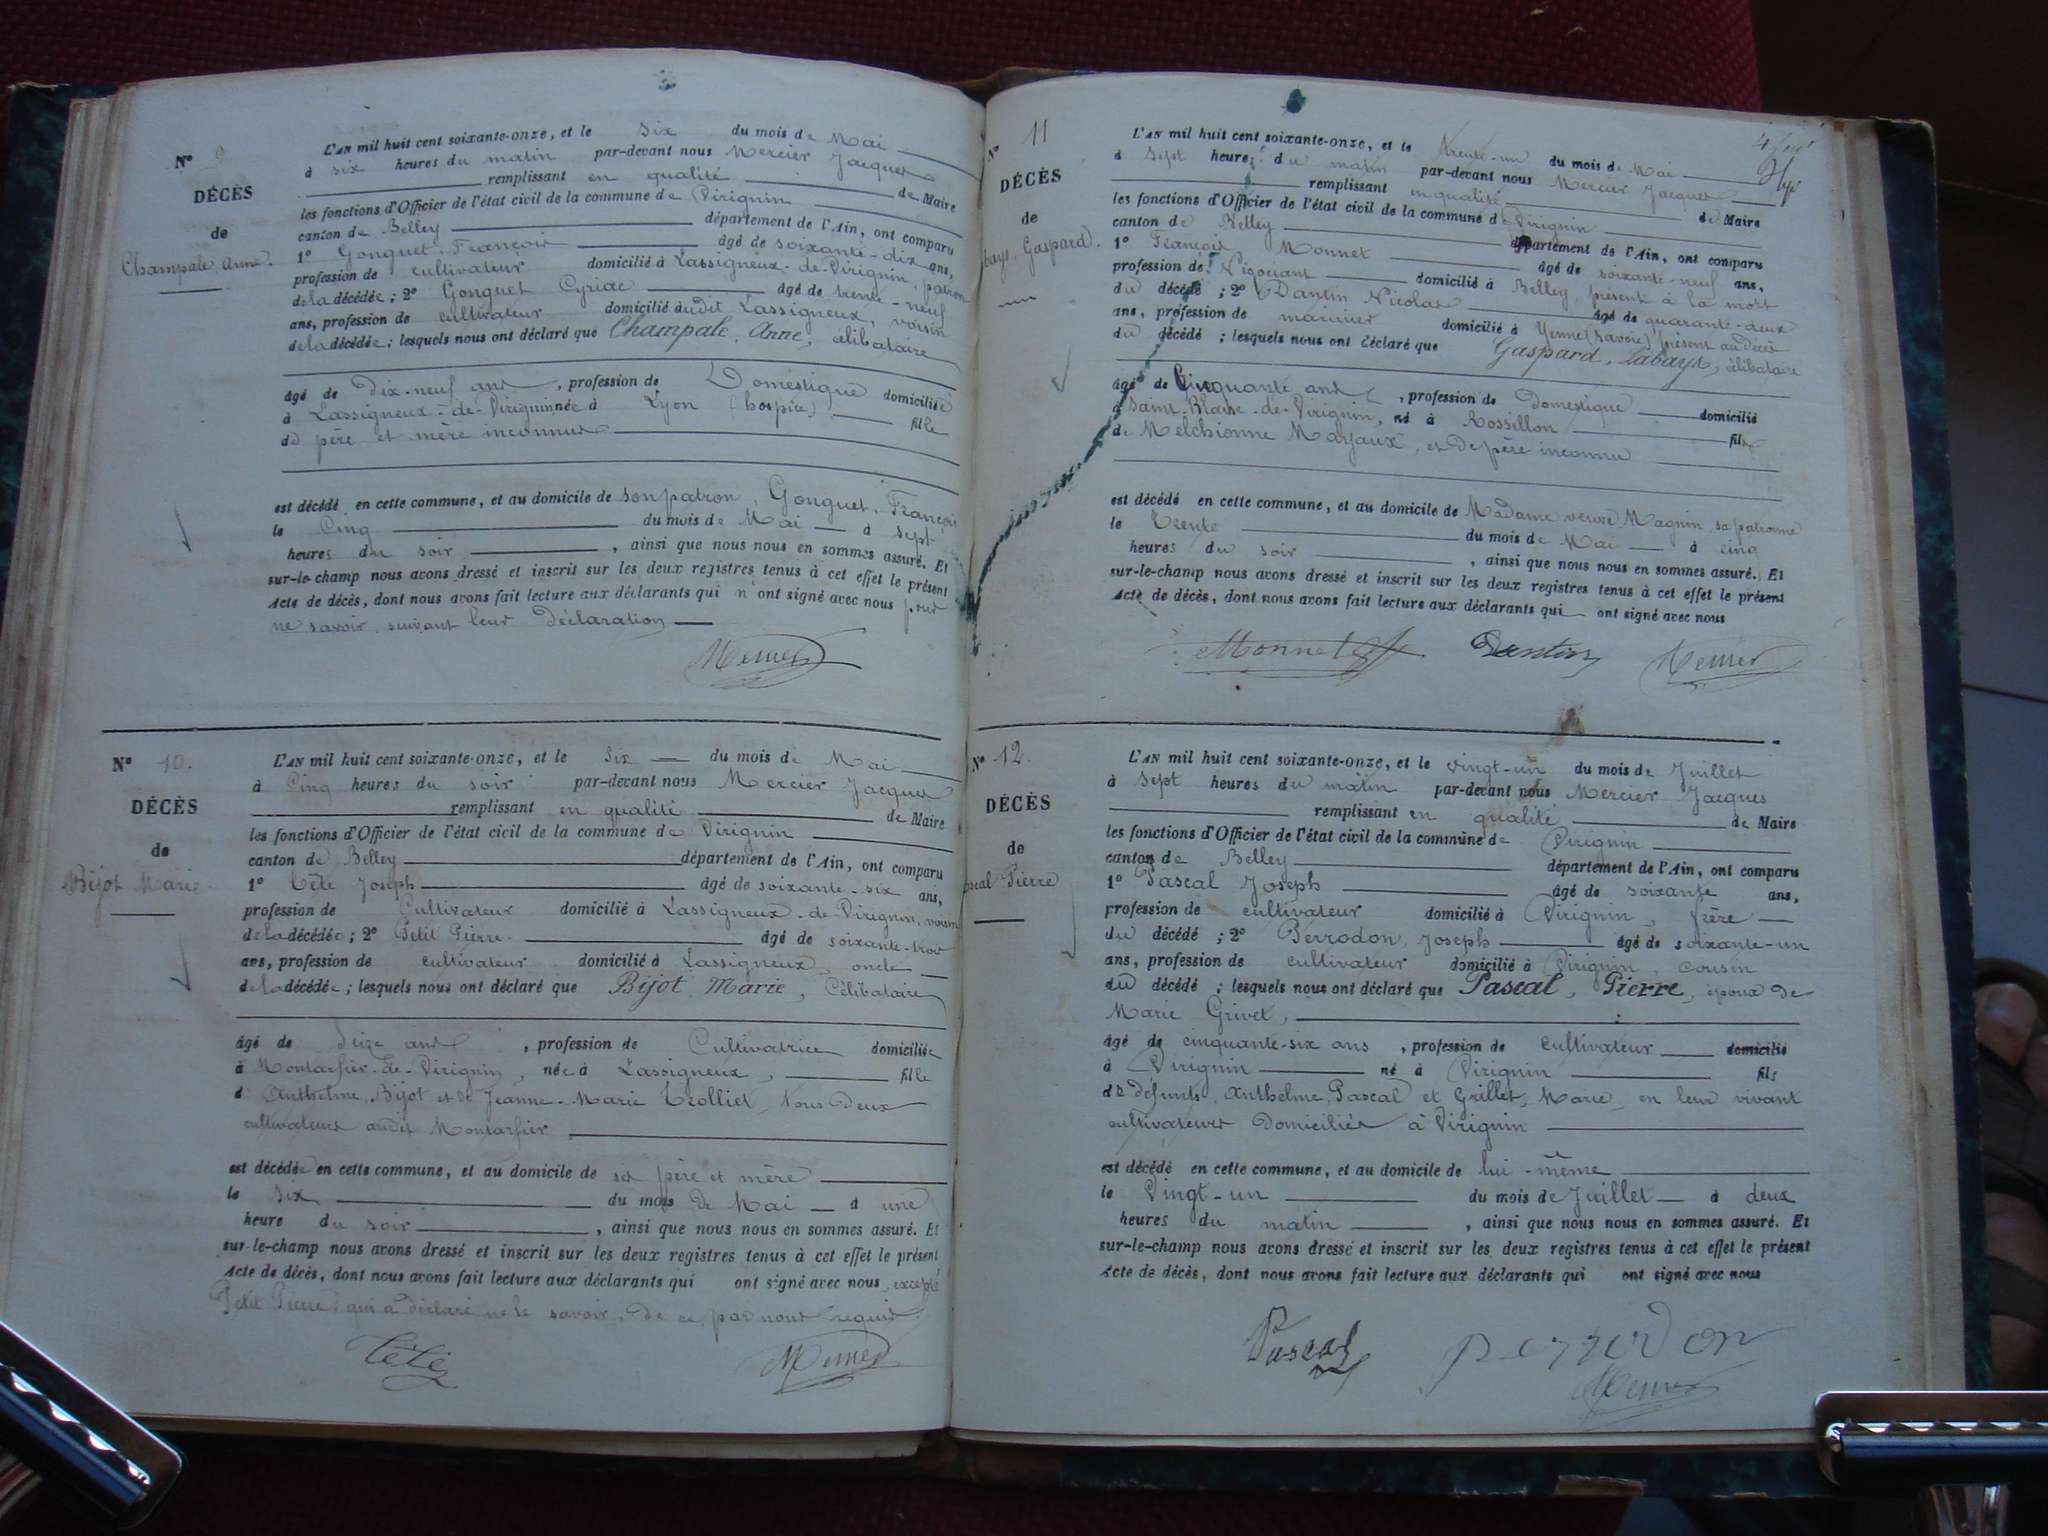 N° 9
DÉCÈS
de
Champale, Anne.
L'AN mil huit cent soixante-onze, et le six du mois de Mai
à six heures du matin par-devant nous Mercier Jacques
remplissant en qualité de Maire
les fonctions d'Officier de l'état civil de la commune de Virignin
canton de Belley département de l'Ain, ont comparu
1° Gonguet, François âgé de soixante-dix ans,
profession de cultivateur domicilié à Lassigneux-de-Virignin, patron
de la décédée; 2° Gonguet Cyriac âgé de trente-neuf
ans, profession de cultivateur domicilié audit Lassigneux, voisin
de la décédée; lesquels nous ont déclaré que Champale, Anne, célibataire
âgé de Dix-neuf ans, profession de Domestique domiciliée
à Lassigneux-de-Virignin née à Lyon (hospice) fille
de père et mère inconnus
est décédé en cette commune, et au domicile de son patron, Gonguet, François
le Cinq du mois de Mai à sept
heures du soir, ainsi que nous nous en sommes assuré. Et
sur-le-champ nous avons dressé et inscrit sur les deux registres tenus à cet effet le présent
Acte de décès, dont nous avons fait lecture aux déclarants qui n'ont signé avec nous pour
ne savoir, suivant leur Déclaration
Mercier
N° 10.
DÉCÈS
de
Bijot Marie
L'AN mil huit cent soixante-onze, et le Six du mois de Mai
à Cinq heures du soir par-devant nous Mercier Jacques
remplissant en qualité de Maire
les fonctions d'Officier de l'état civil de la commune de Virignin
canton de Belley département de l'Ain, ont comparu
1° Tête Joseph âgé de soixante-six ans,
profession de Cultivateur domicilié à Lassigneux-de-Virignin, voisin
de la décédée; 2° Petit Pierre âgé de soixante-trois
ans, profession de cultivateur domicilié à Lassigneux, oncle
de la décédée; lesquels nous ont déclaré que Bijot, Marie, Célibataire
âgé de ans, profession de Cultivatrice domiciliée
à Montarfier-de-Virignin, née à Lassigneux, fille
d'Anthelme, Bijot et de Jeanne-Marie Trolliet, tous deux
cultivateurs audit Montarfier
est décédée en cette commune, et au domicile de ses père et mère
le six du mois de Mai à une
heure du soir, ainsi que nous nous en sommes assuré. Et
sur-le-champ nous avons dressé et inscrit sur les deux registres tenus à cet effet le présent
Acte de décès, dont nous avons fait lecture aux déclarants qui ont signé avec nous, excepté
Petit Pierre qui a déclaré ne le savoir, de ce par nous requis
Tête Mercier
N° 11
DÉCÈS
de
Gaspard.
L'AN mil huit cent soixante-onze, et le trente-un du mois de Mai
à Sept heures du matin par-devant nous Mercier Jacques
remplissant en qualité de Maire
les fonctions d'Officier de l'état civil de la commune de Virignin
canton de Belley département de l'Ain, ont comparu
1° François Monnet âgé de soixante-neuf ans,
profession de Négociant domicilié à Belley, présent à la mort
du décédé; 2° Dantin Nicolas âgé de quarante-deux
ans, profession de marinier domicilié à Yenne (Savoie) présent au décès
du décédé; lesquels nous ont déclaré que Gaspard, Labays, célibataire
âgé de Cinquante ans, profession de Domestique domicilié
à Saint-Blaise-de-Virignin, né à Rossillon fils
de Melchionne Mayaux, et de père inconnu
est décédé en cette commune, et au domicile de Madame veuve Magnin, sa patronne
le Trente du mois de Mai à cinq
heures du soir, ainsi que nous nous en sommes assuré. Et
sur-le-champ nous avons dressé et inscrit sur les deux registres tenus à cet effet le présent
Acte de décès, dont nous avons fait lecture aux déclarants qui ont signé avec nous
Monnet Dantin Mercier
N° 12.
DÉCÈS
de
Pascal Pierre
L'AN mil huit cent soixante-onze, et le vingt-un du mois de Juillet
à Sept heures du matin par-devant nous Mercier Jacques
remplissant en qualité de Maire
les fonctions d'Officier de l'état civil de la commune de Virignin
canton de Belley département de l'Ain, ont comparu
1° Pascal Joseph âgé de soixante ans,
profession de cultivateur domicilié à Virignin, frère
du décédé; 2° Perrodon, Joseph âgé de soixante-un
ans, profession de cultivateur domicilié à Virignin, cousin
du décédé; lesquels nous ont déclaré que Pascal, Pierre, époux de
Marie Grivet,
âgé de cinquante-six ans, profession de Cultivateur domicilié
à Virignin né à Virignin fils
de défunts, Anthelme, Pascal et Grillet, Marie, en leur vivant
cultivateurs Domiciliés à Virignin
est décédé en cette commune, et au domicile de lui-même
le Vingt-un du mois de Juillet à deux
heures du matin, ainsi que nous nous en sommes assuré. Et
sur-le-champ nous avons dressé et inscrit sur les deux registres tenus à cet effet le présent
Acte de décès, dont nous avons fait lecture aux déclarants qui ont signé avec nous
Pascal perrodon
Mercier